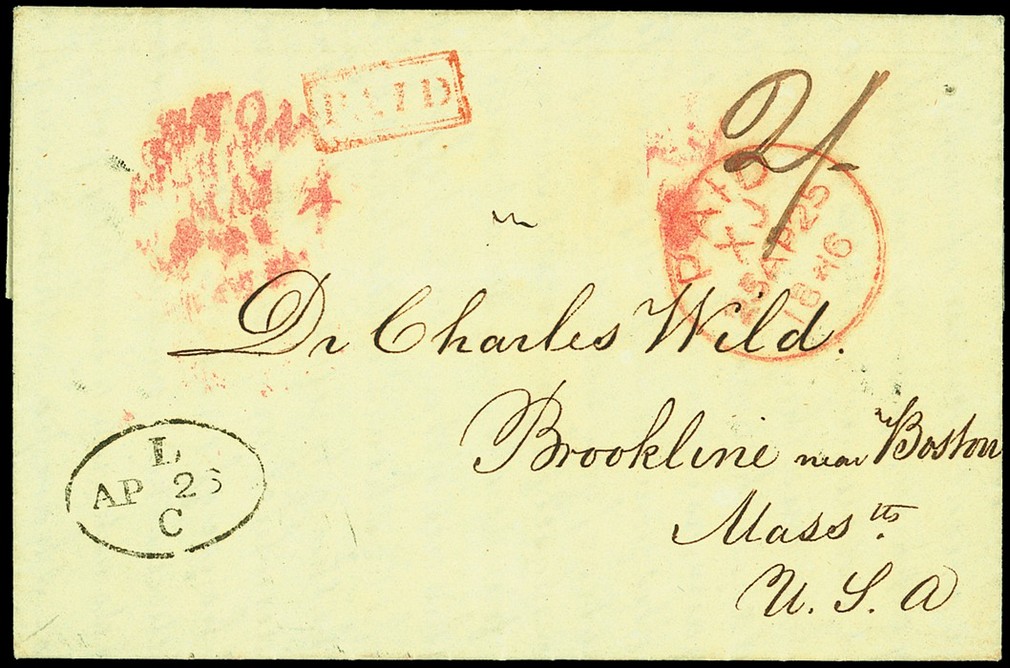 PAID
2/
PAID
XJ
25AP25
1846
Dr Charles Wild.
Brookline near Boston
Mass tts.
U. S. A
L
AP 25
C